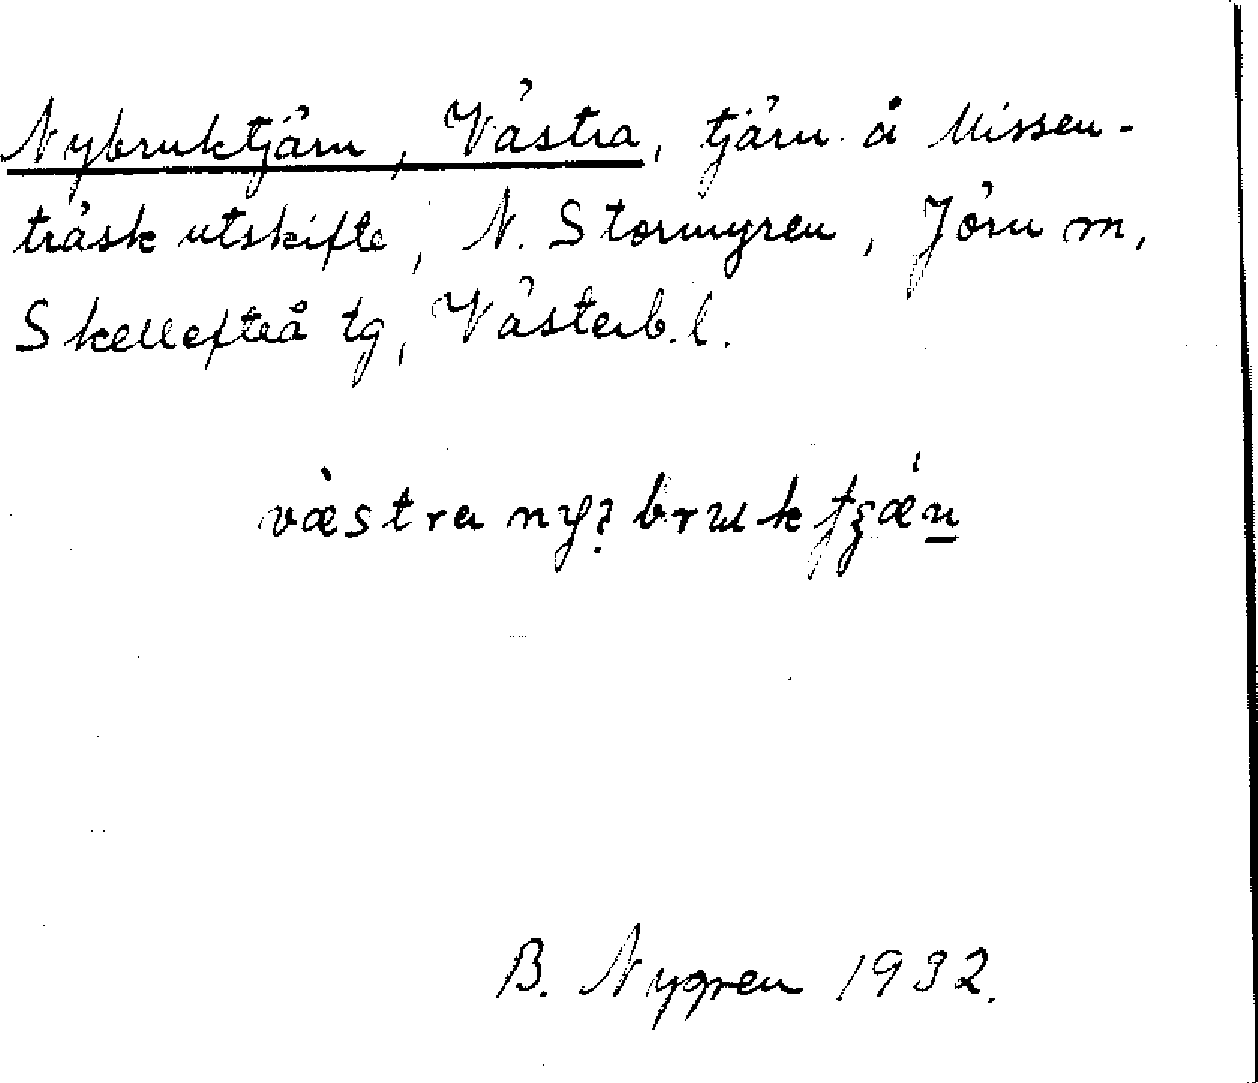 Nybruktjärn, Västra, tjärn å Missen-
träsk utskifte, N. Stormyren, Jörn sn,
Skellefteå tg, Västerb. l.
væ̀stra ny₂brukt̡ʒǽn
B. Nygren 1932.